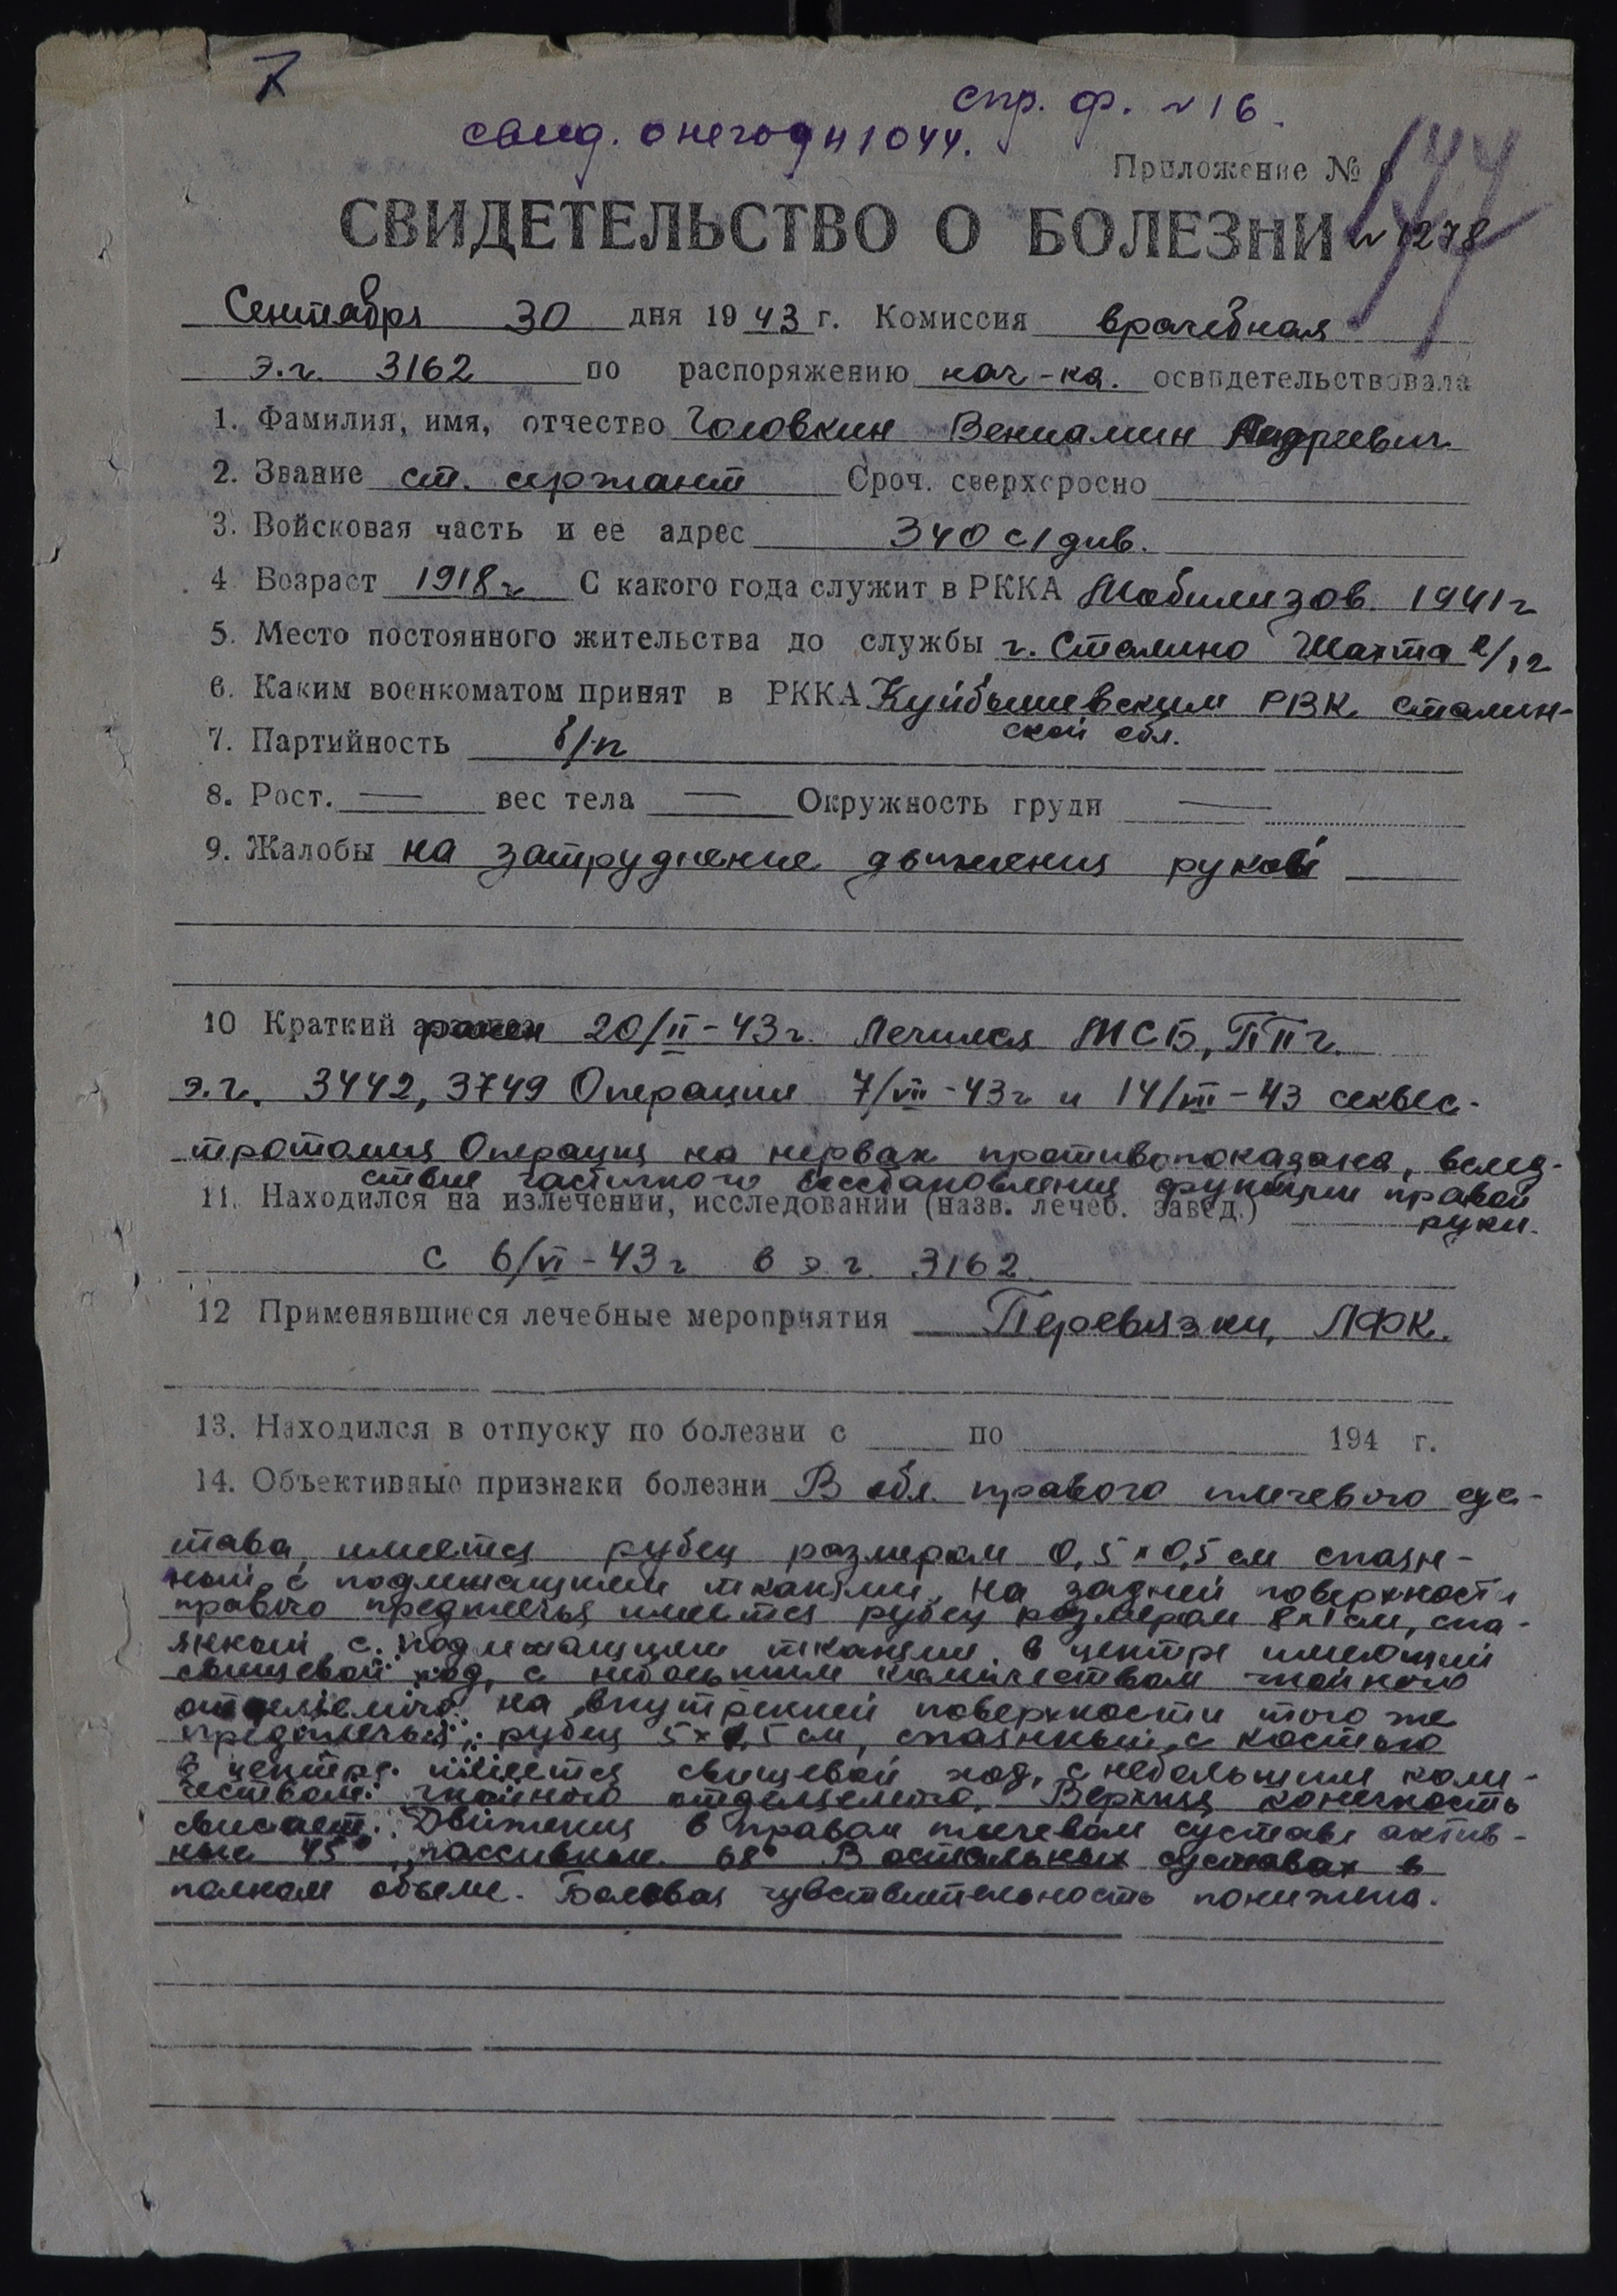 7
спр. ф. N 16.
свид. о негодн 1044.
Приложение №
144
СВИДЕТЕЛЬСТВО О БОЛЕЗНИ N 1278
Сентября 30 дня 1943 г. Комиссия врачебная
э.г. 3162 по распоряжению нач-ка. освидетельствовала
1. Фамилия, имя, отчество Головкин Вениамин Андреевич
2. Звание ст. сержант Сроч. сверхсросно
3. Войсковая часть и ее адрес 340 с/див.
4 Возраст 1918 г С какого года служит в РККА Мобилизов. 1941 г
5. Место постоянного жительства до службы г. Сталино Шахта
6. Каким военкоматом принят в РККА Куйбышевским РВК. Сталин-
ской обл.
7. Партийность б/п
8. Рост. — вес тела — Окружность груди —
9. Жалобы на затруднение движения рукой
10 Краткий ранен 20/II-43 г. Лечился МСБ, ППГ.
э.г. 3442, 3749 Операция 7/VII-43 г и 14/VIII-43 секвес-
тротомия Операция на нервах противопоказана, вслед-
ствие частичного восстановления функции правой
руки.
11. Находился на излечении, исследовании (назв. лечеб. завед.)
с 6/VI-43 г в э.г. 3162.
12 Применявшиеся лечебные мероприятия Перевязки, ЛФК.
13. Находился в отпуску по болезни с по 194 г.
14. Объективные признаки болезни В обл. правого плечевого сус-
тава, имеется рубец размером 0,5 x 0,5 см спаян-
ный с подлежащими тканями, на задней поверхности
правого предплечья имеется рубец размером 8x1 см, спа-
янный с подлежащими тканями, в центре имеющий
свищевой ход, с небольшим количеством гнойного
отделяемого. на внутренней поверхности того же
предплечья, рубец 5x1,5 см, спаянный с костью
в центре имеется свищевой ход, с небольшим коли-
чеством гнойного отделяемого. Верхняя конечность
свисает. Движения в правом плечевом суставе актив-
ные 45°, пассивные 68° В остальных суставах в
полном объеме. Болевая чувствительность понижена.